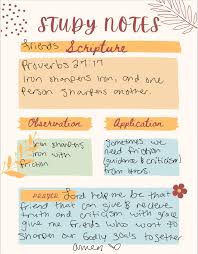 STUDY NOTES
friends Scripture
Proverbs 27:17
Iron sharpens iron, and one
person sharpens another.
Observation
Application
Iron sharpens
iron with
friction
Sometimes we
need friction
(guidance & criticism)
from others.
PRAYER Lord help me be that
friend that can give & recieve
truth and criticism with grace
give me friends who want to
sharpen our Godly goals together
amen